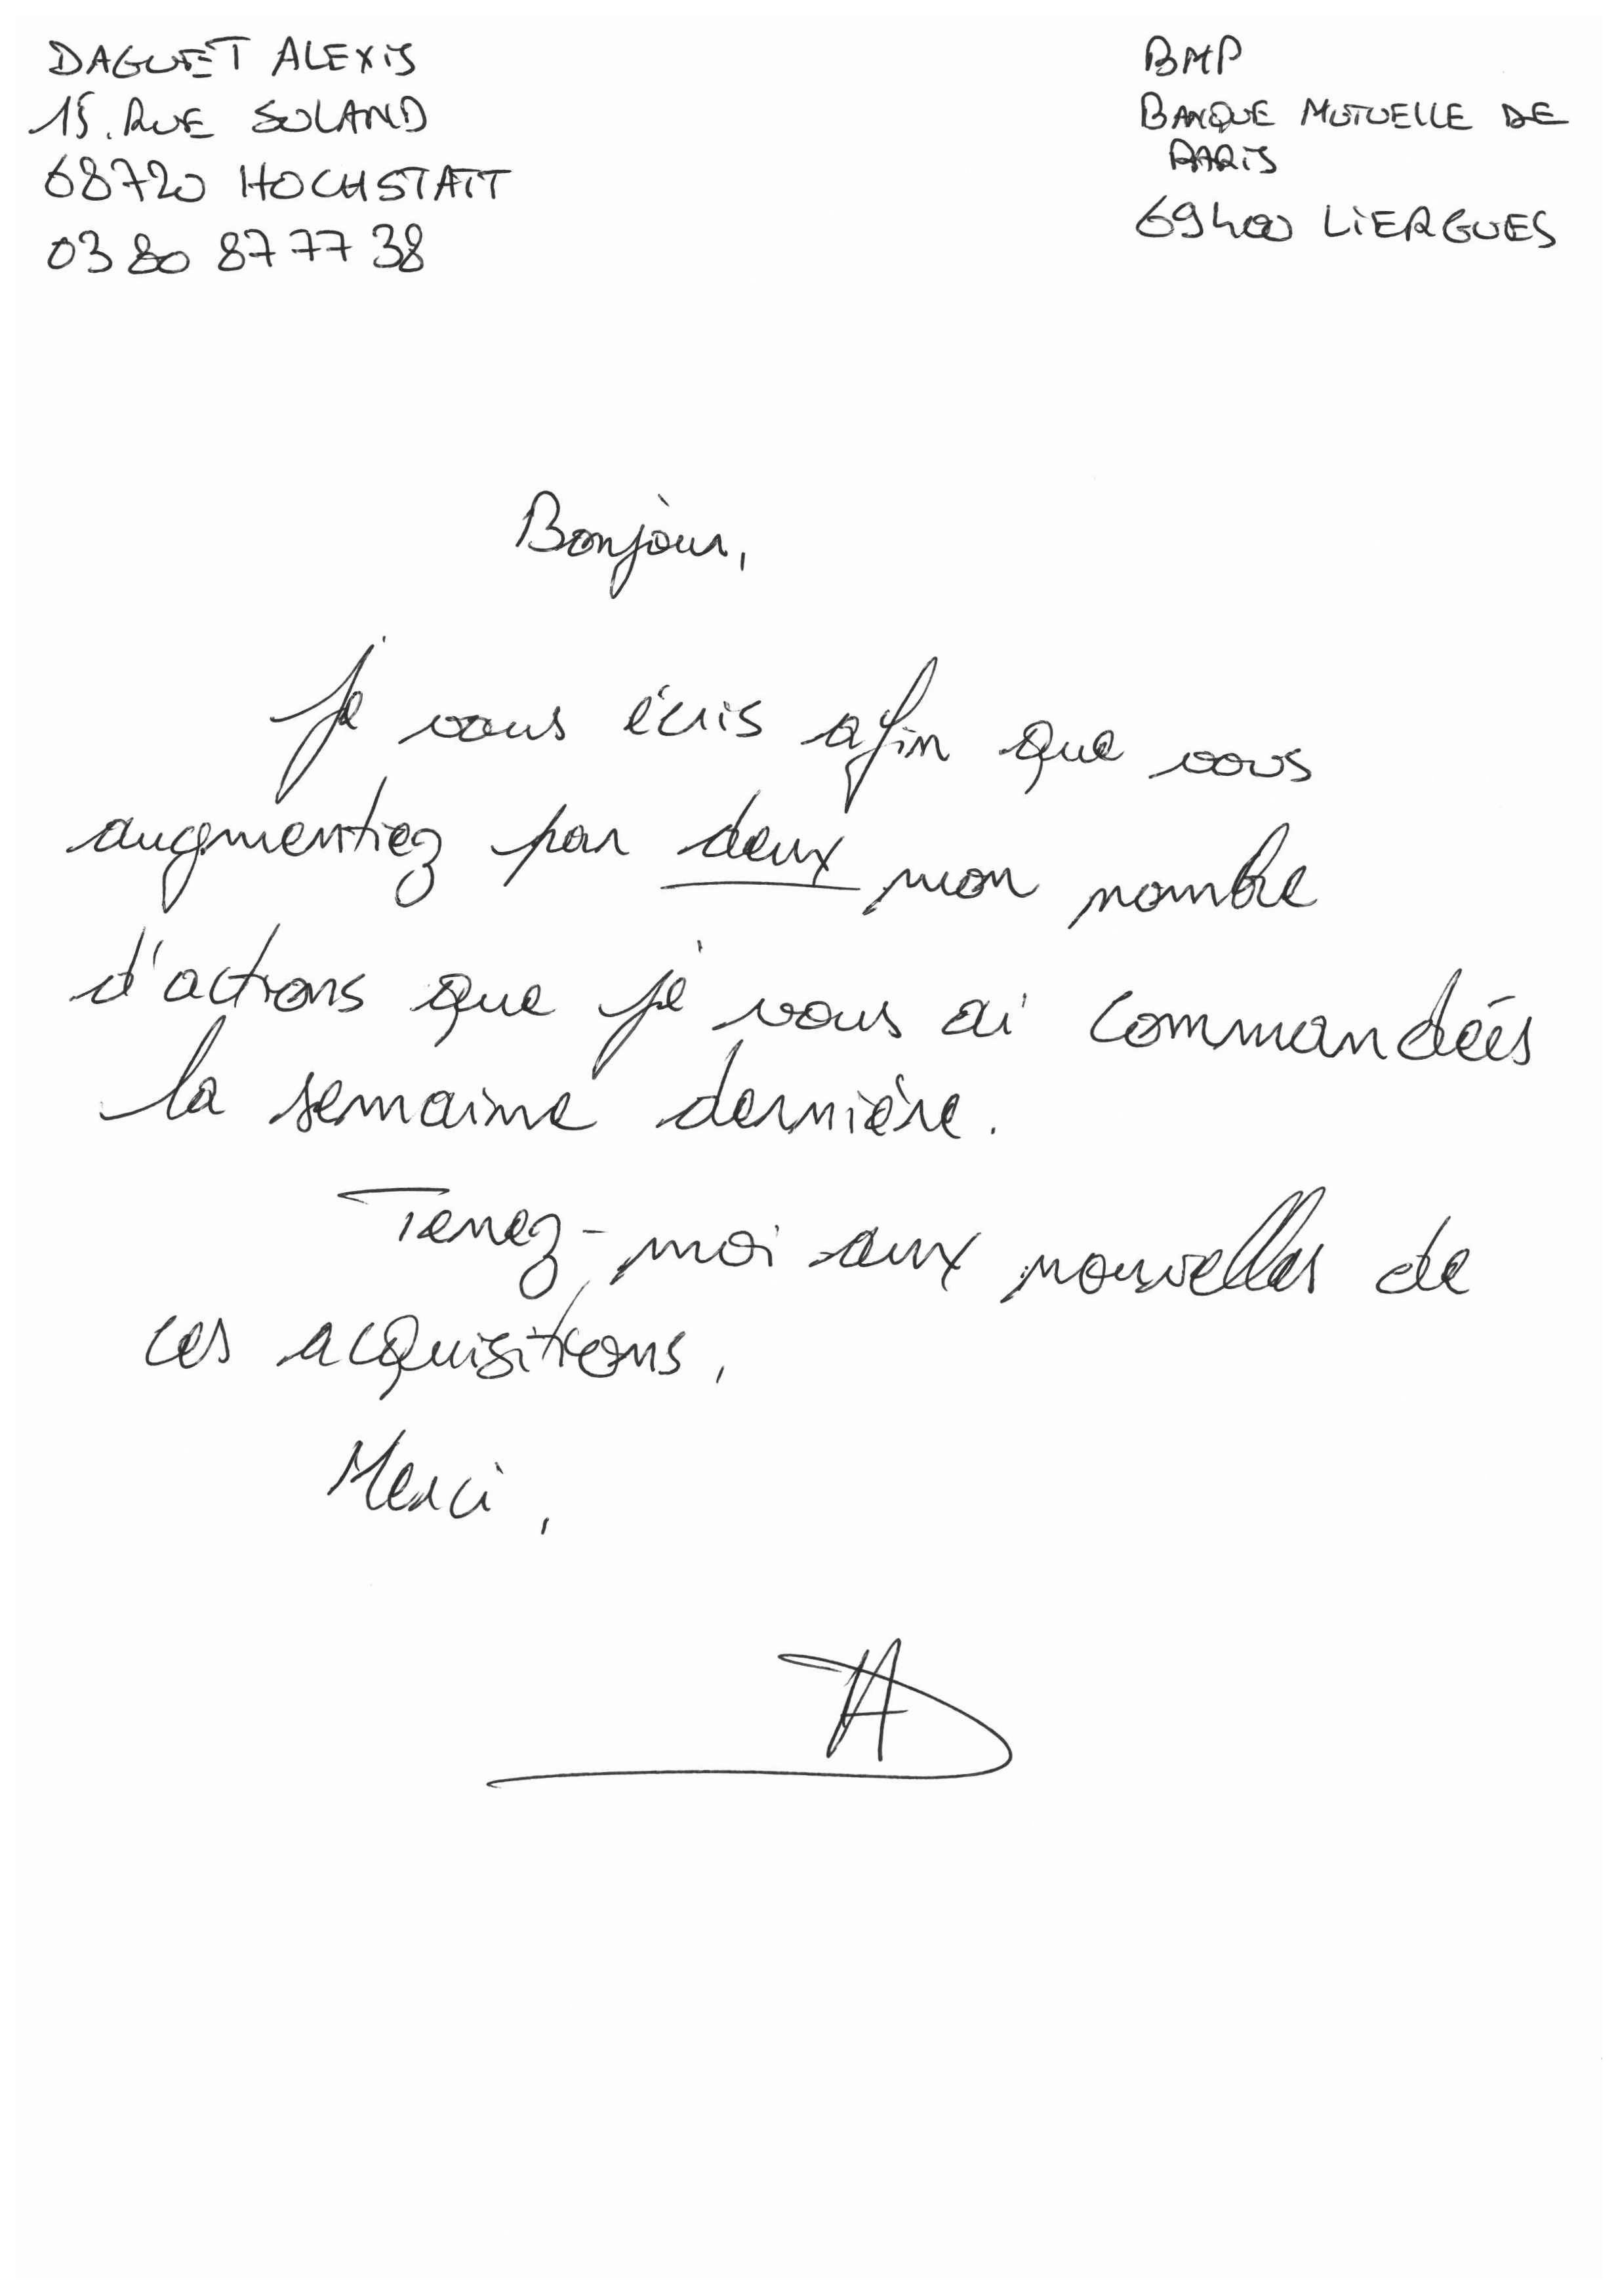 DAGUET ALEXIS
15. RUE SOLAND
68720 HOCHSTATT
03 80 87 77 38
BMP
BANQUE MUTUELLE DE
PARIS
69400 LIERGUES
Bonjour,
Je vous écris afin que vous
augmentiez par deux mon nombre
d'actions que je vous ai commandées
la semaine dernière.
Tenez-moi aux nouvelles de
ces acquisitions,
Merci,